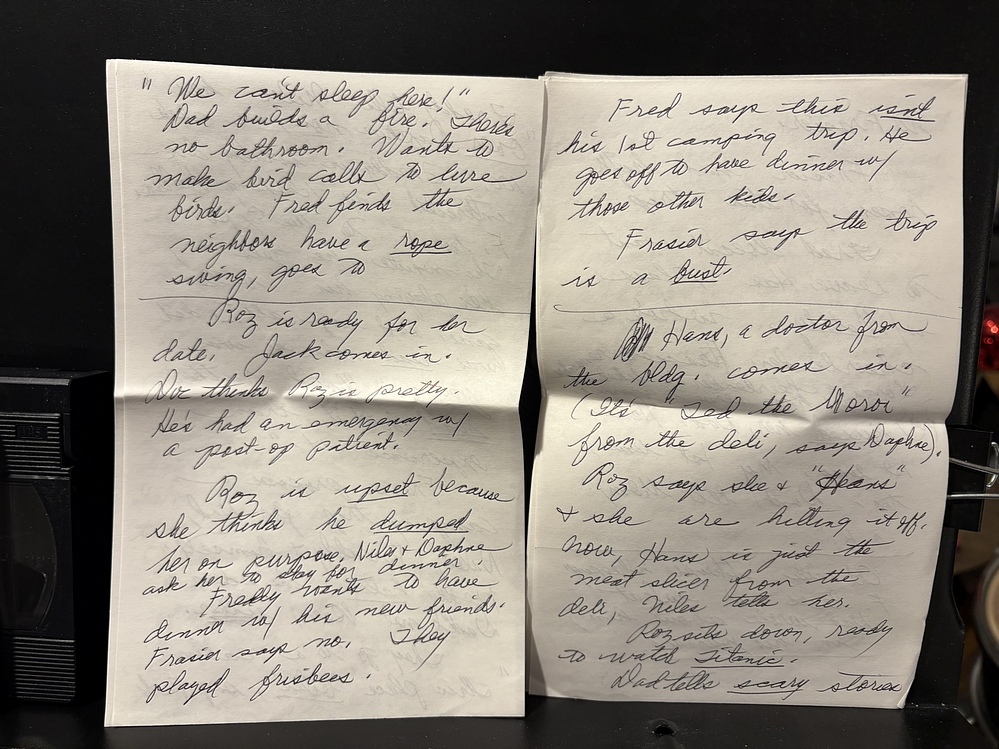 "We can't sleep here!"
Dad builds a fire. There's
no bathroom. Wants to
make bird calls to lure
birds. Fred finds the
neighbors have a rope
swing, goes to
Roz is ready for her
date. Jack comes in.
Doc thinks Roz is pretty.
He's had an emergency w/
a post-op patient.
Roz is upset because
she thinks he dumped
her on purpose. Niles & Daphne
ask her to stay for dinner.
Freddy wants to have
dinner w/ his new friends.
Frasier says no. They
played frisbees.
Fred says this isnt
his 1st camping trip. He
goes off to have dinner w/
those other kids.
Frasier says the trip
is a bust.
Hans, a doctor from
the bldg. comes in.
(It's "Ted the Moron"
from the deli, says Daphne).
Roz says she & "Hans"
& she are hitting it off.
now, Hans is just the
meat slicer from the
deli, Niles tells her.
Roz sits down, ready
to watch Titanic.
Dad tells scary stories